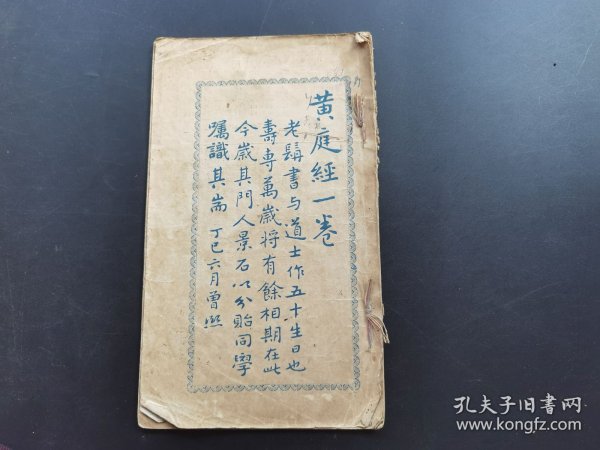 黄庭經一卷
老髯書与道士作五十生日也
壽専萬歲将有餘相期在此
今歲其門人景石以分貽同學
囑識其耑 丁巳六月曾熙
孔夫子旧书网
www.kongfz.com